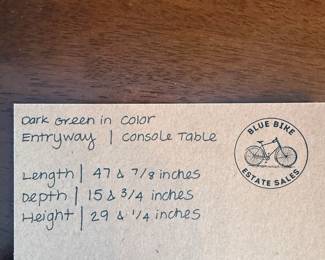 Dark Green in Color
Entryway | Console Table
BLUE BIKE
ESTATE SALES
Length | 47 & 7/8 inches
Depth | 15 & 3/4 inches
Height | 29 & 1/4 inches